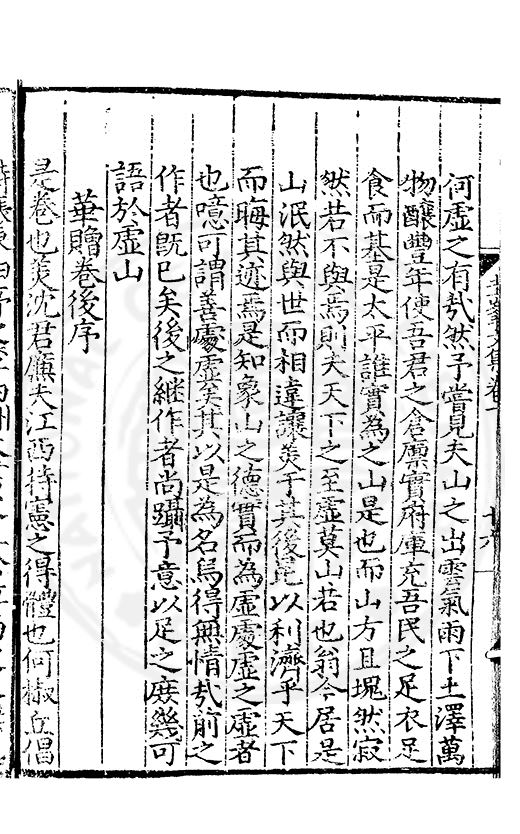 何虛之有㢤然予嘗見夫山之出雲氣雨下土澤萬
物釀豐年使吾君之倉廪實府庫充吾民之足衣足
食而基是太平誰實為之山是也而山方且塊然寂
然若不與焉則夫天下之至虛莫山若也翁今居是
山泯然與世而相違讓羙于其後昆以利濟乎天下
而晦其迹焉是知象山之德實而為虛處虛之虛者
也噫可謂善處虛矣其以是為名烏得無情㢤前之
作者旣已矣後之継作者尚躡予意以足之庶幾可
語於虛山
華贍卷後序
是卷也羙沈君䕃夫江西持憲之得體也何椒丘倡